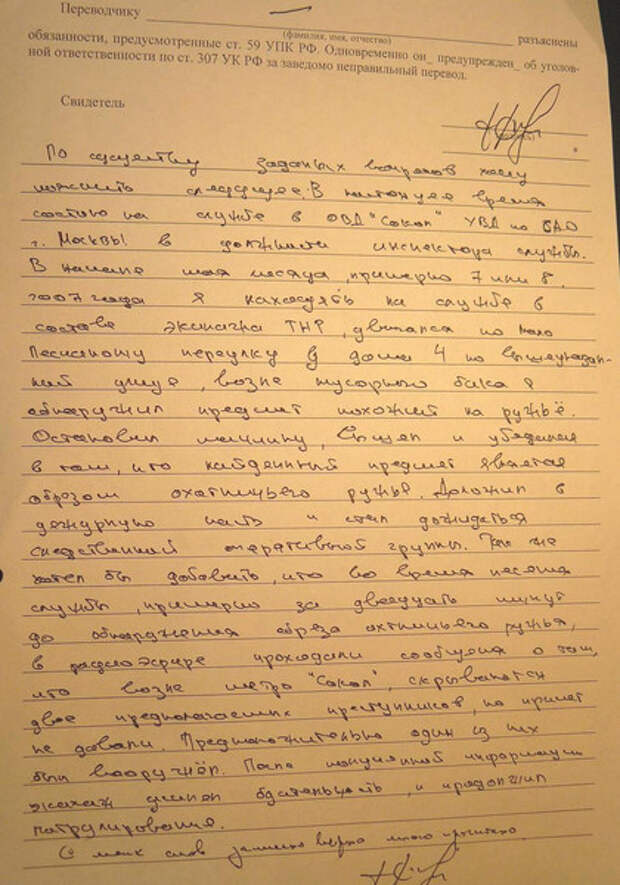 Переводчику
(фамилия, имя, отчество)
разъяснены
обязанности, предусмотренные ст. 59 УПК РФ. Одновременно он_ предупрежден_ об уголов-
ной ответственности по ст. 307 УК РФ за заведомо неправильный перевод.
Свидетель
По существу заданых вопросов хочу
пояснить следующее: В настоящее время
состою на службе в ОВД "Сокол" УВД по САО
г. Москвы в должности инспектора службы.
В начале мая месяца, примерно 7 или 8.
2007 года я находясь на службе в
составе экипажа двигался по мало
Песчаному переулку У дома 4 по вышеуказан-
ной улице, возле мусорного бака я
обнаружил предмет похожий на ружьё.
Остановил машину, вышел и убедился
в том, что найденный предмет является
обрезом охотничьего ружья. Доложил в
дежурную часть и стал дожидаться
следственной оперативной группы. Так же
хотел бы добавить, что во время несения
службы, примерно за двадцать минут
до обнаружения обреза охтничьего ружья,
в радиоэфире проходили сообщения о том,
что возле метро "Сокол", скрываются
двое предполагаемых преступников, но примет
не давали. Предположительно один из них
был вооружён. После полученной информации
экипаж усилил бдительность, и продолжил
патрулирование.
С моих слов записано верно мною прочитано